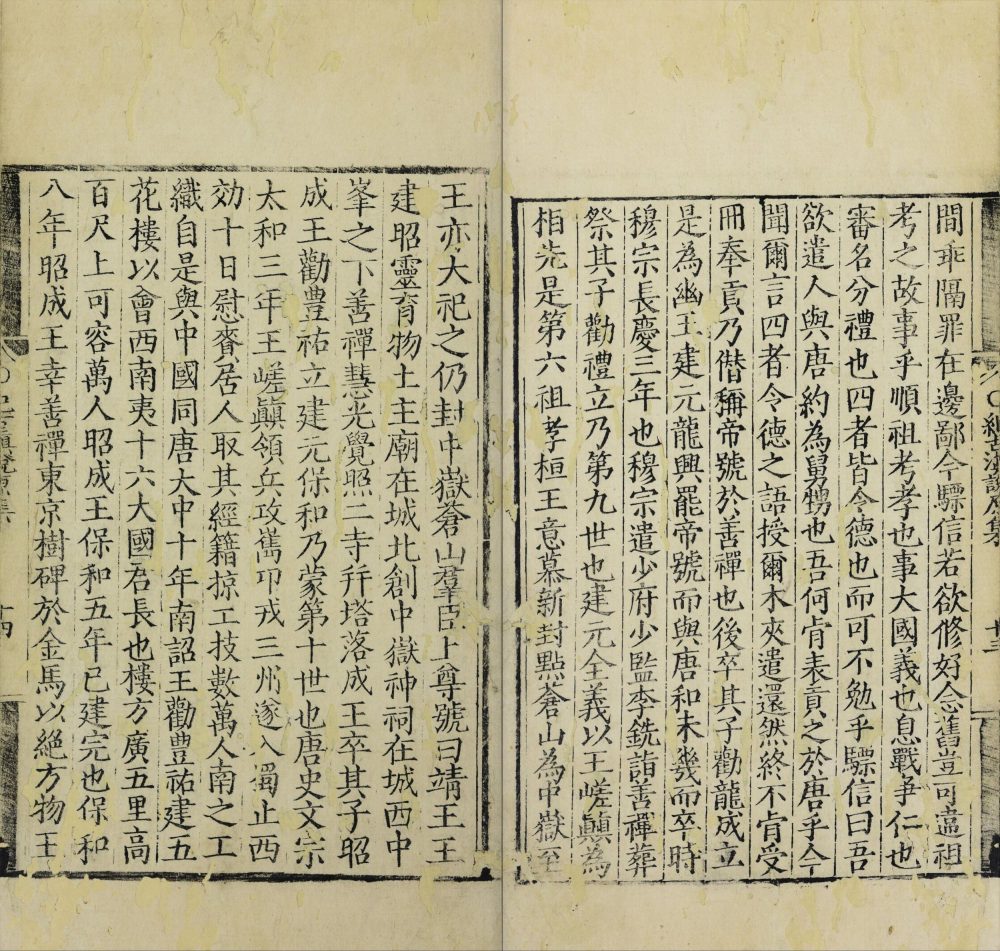 間乖隔罪在邊鄙今驃信若欲修好念舊豈可違祖
考之故事乎順祖考孝也事大國義也息戰爭仁也
審名分禮也四者皆令德也而可不勉乎驃信曰吾
欲遣人與唐約為舅甥也吾何肯表貢之於唐乎今
聞爾言四者令德之語授爾木夾遣還然終不肯受
冊奉貢乃僭稱帝號於善禪也後卒其子勸龍成立
是為幽王建元龍興罷帝號而與唐和未幾而卒時
穆宗長慶三年也穆宗遣少府少監李銑詣善禪葬
祭其子勸禮立乃第九世也建元全義以王嵯巔為
相先是第六祖孝桓王意慕新封點蒼山為中嶽至
十三
王亦大祀之仍封中嶽蒼山羣臣上尊號曰靖王王
建昭靈育物土主廟在城北創中嶽神祠在城西中
峯之下善禪慧光覺照二寺幷塔落成王卒其子昭
成王勸豊祐立建元保和乃蒙第十世也唐史文宗
太和三年王嵯巔領兵攻嶲卭戎三州遂入蜀止西
効十日慰賚居人取其經籍掠工技數萬人南之工
織自是與中國同唐大中十年南詔王勸豊祐建五
花樓以會西南夷十六大國君長也樓方廣五里高
百尺上可容萬人昭成王保和五年已建完也保和
八年昭成王幸善禪東京樹碑於金馬以絕方物王
十四